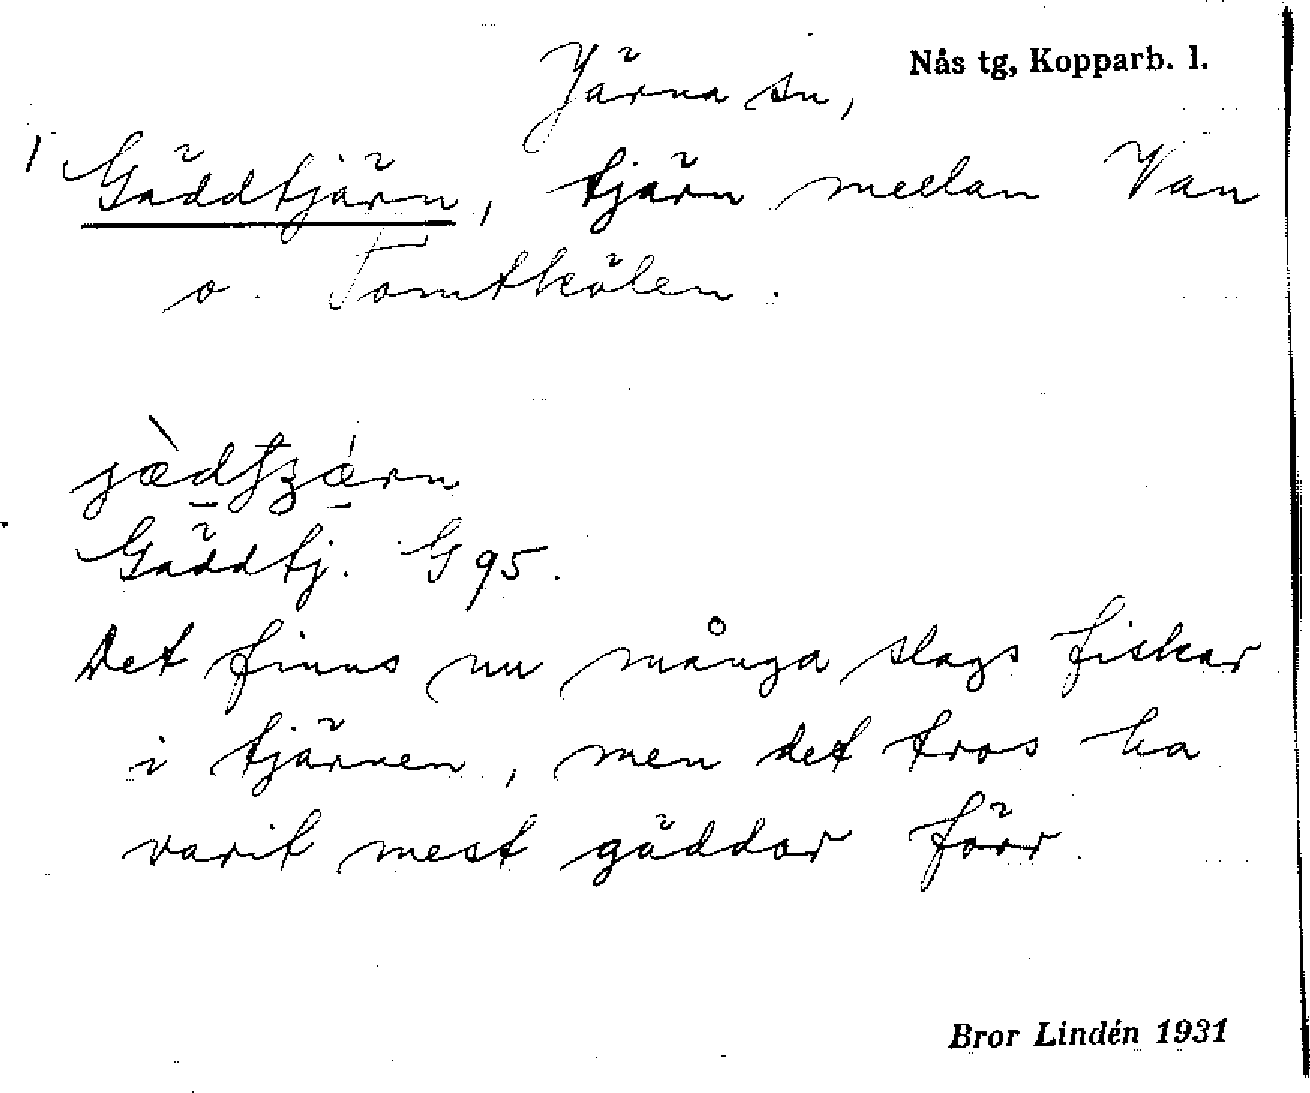 Nås tg, Kopparb. l.
Järna sn,
1 Gäddtjärn, tjärn mellan Van
o. Tomtkölen.
Gäddtj. G 95.
Det finns nu många slags fiskar
i tjärnen, men det tros ha
varit mest gäddor förr.
Bror Lindén 1931